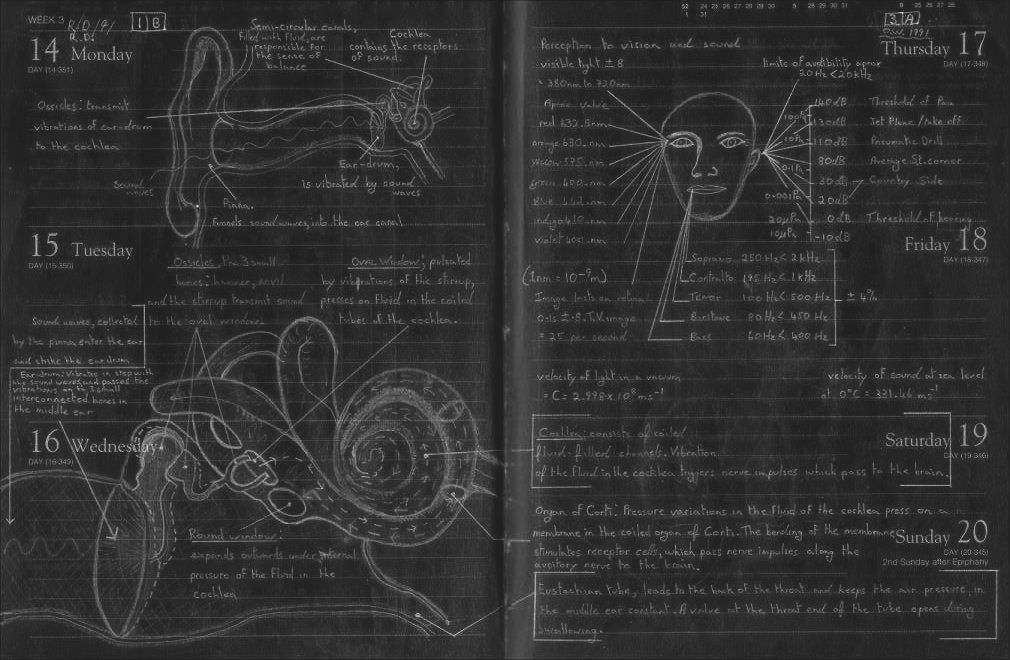 WEEK 3
1 B
14 Monday
DAY (14-351)
Semi-circular canals,
filled with fluid, are
responsible for
the sense of
balance
Cochlea
contains the receptors
of sound.
Ossicles: transmit
vibrations of ear-drum
to the cochlea
Sound
waves
Pinna.
Funnels sound waves into the ear canal
Ear-drum,
is vibrated by sound
waves
15 Tuesday
DAY (15-350)
Ossicles, the 3 small
bones: hammer, anvil
and the stirrup transmit sound
to the oval window
Oval Window; pulsated
by vibrations of the stirrup,
presses on fluid in the coiled
tubes of the cochlea.
Sound waves, collected
by the pinna enter the ear
and strike the eardrum
Ear drum: Vibrates in step with
the sound waves and passes the
vibrations on to 3 small
interconnected bones in
the middle ear
16 Wednesday
DAY (16-349)
Round window:
expands outwards under internal
pressure of the fluid in the
cochlea
3 A
Thursday 17
DAY (17-348)
Perception to vision and sound
visible light ± 8
≈ 380nm to 750nm
Aprox Value
red
orange
yellow
green
Blue
indigo 410 nm
violet
(1nm = 10⁻⁹m)
Image lasts on retina
T.V. image
= 25 per second
limits of audibility aprox
20 Hz < 20kHz
140dB Threshold of Pain
130dB Jet Plane/take off
110dB Pneumatic Drill
80dB Average St. corner
30dB Country Side
20dB
20µPa 0dB Threshold of hearing
10µPa -10dB
Friday 18
DAY (18-347)
Soprano 250 Hz < 2 kHz
Contralto 175 Hz < 1 kHz
Tenor 100 Hz < 500 Hz
± 4%
Baritone 80 Hz < 450 Hz
Bass 60 Hz < 400 Hz
velocity of light in a vacuum
= C = 2.998 x 10⁸ ms⁻¹
velocity of sound at sea level
at 0°C = 331.46 ms⁻¹
Saturday 19
DAY (19-346)
Cochlea: consists of coiled
fluid-filled channels. Vibration
of the fluid in the cochlea triggers nerve impulses which pass to the brain.
Sunday 20
DAY (20-345)
2nd Sunday after Epiphany
Organ of Corti: Pressure variations in the fluid of the cochlea press on a
membrane in the coiled organ of Corti. The bending of the membrane
stimulates receptor cells, which pass nerve impulses along the
auditory nerve to the brain.
Eustachian tube, leads to the back of the throat and keeps the air pressure in
the middle ear constant. A valve at the throat end of the tube opens during
swallowing.